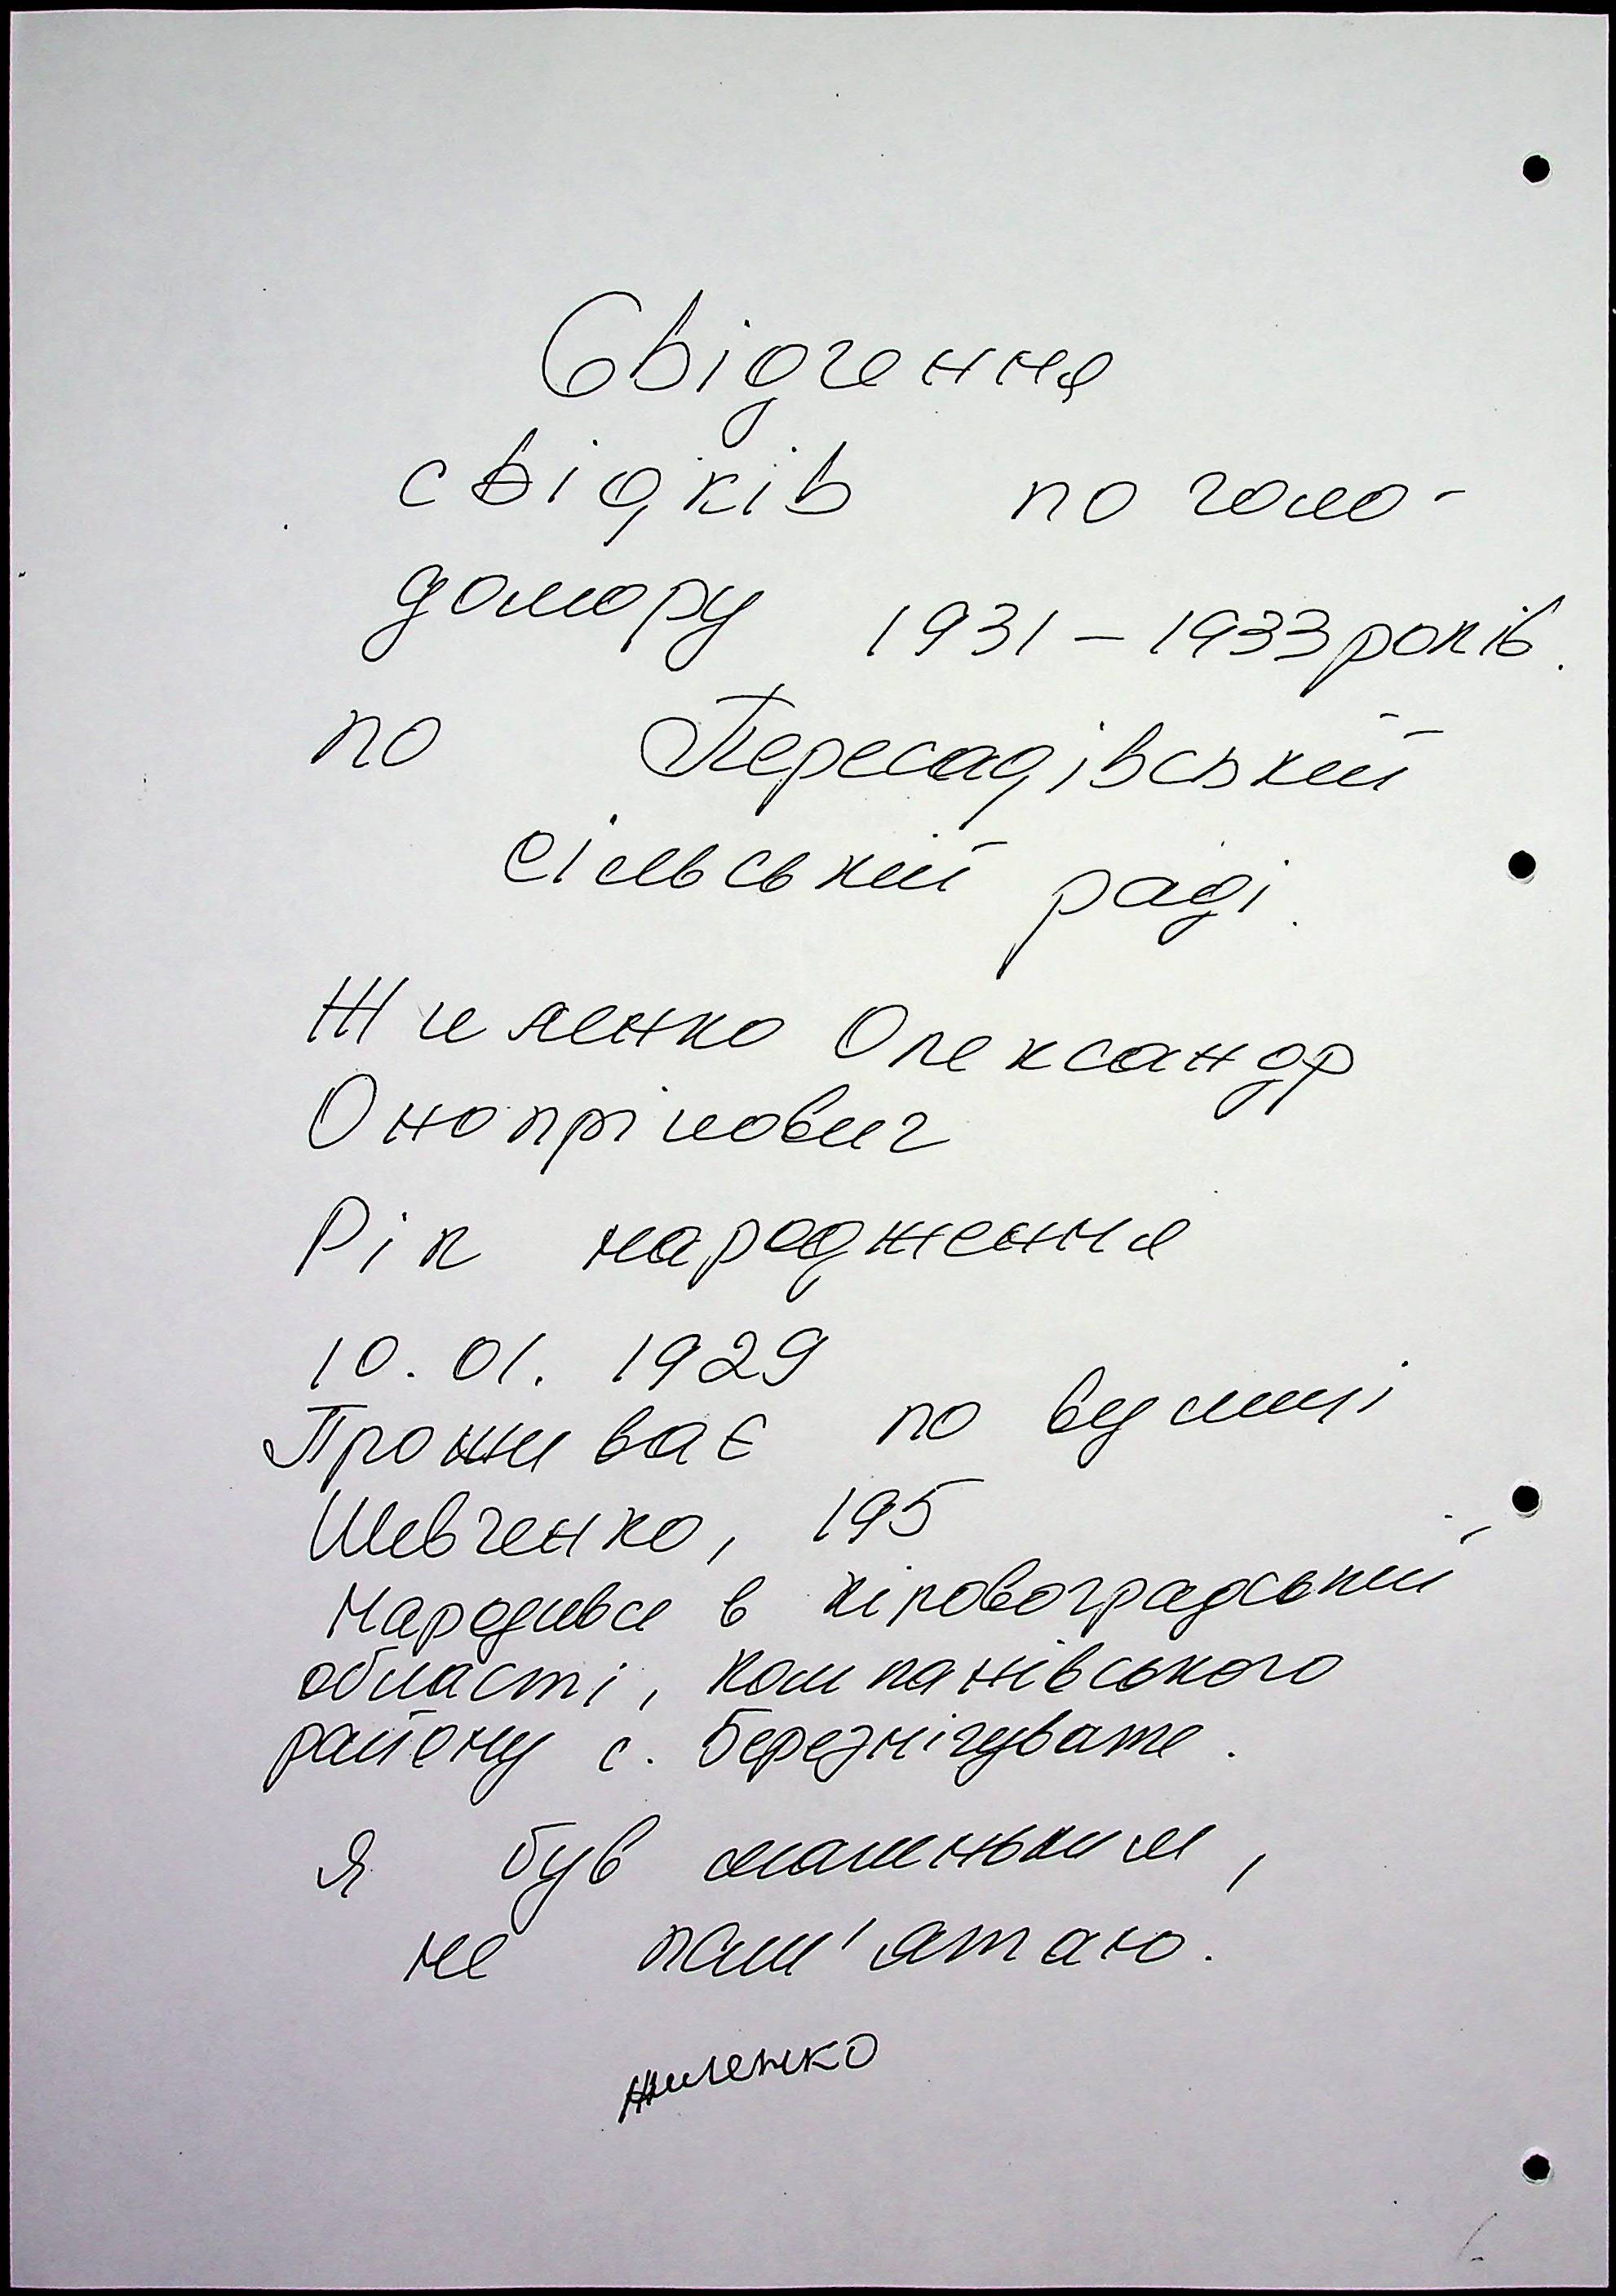 Свідчення
свідків по голо-
домору 1931 - 1933 років.
по Пересадівський
сільський раді.
Жиленко Олександр
Онопрійович
Рік народження
10.01.1929
Проживає по вулиці
Шевченко, 195
Народився в кіровоградський
області, компаніївського
району с.
Я був маленьким,
не пам'ятаю.
Жиленко